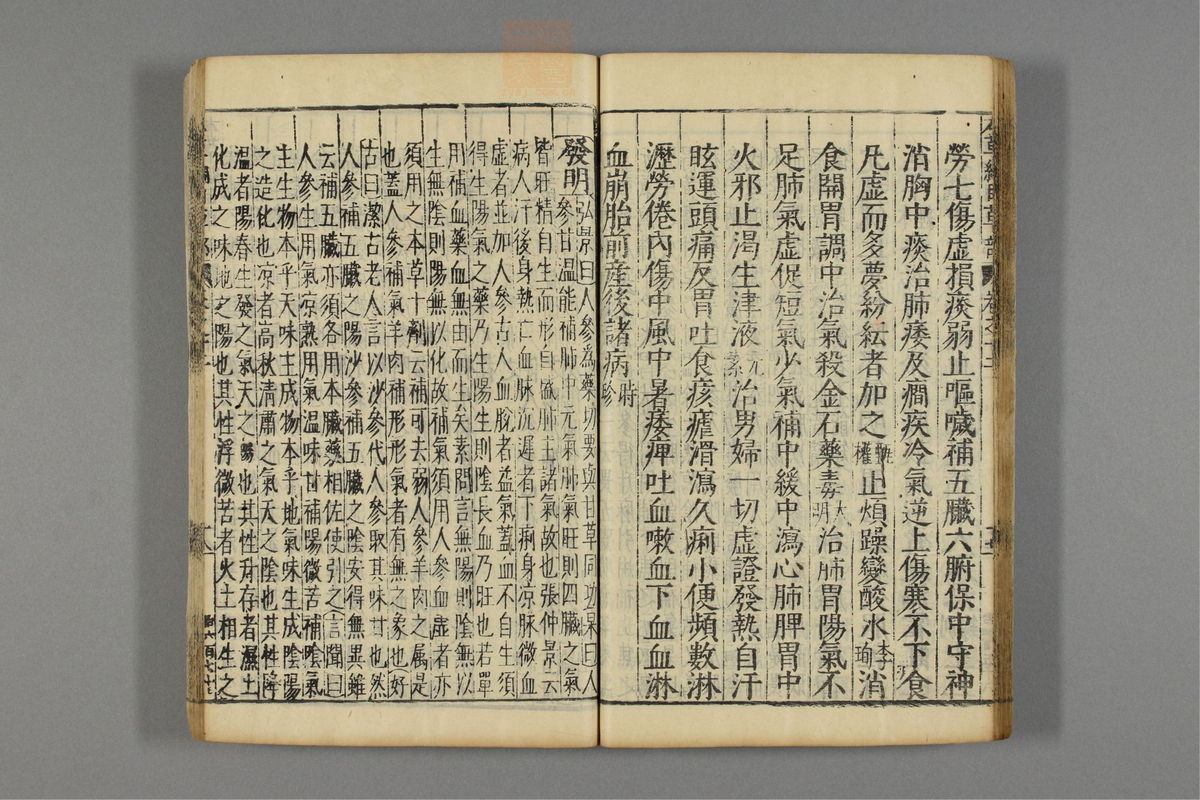 勞七傷虛損痰弱止嘔噦補五臟六腑保中守神
消胸中痰治肺痿及癇疾冷氣逆上傷寒不下食
凡虛而多夢紛紜者加之甄權止煩躁變酸水李珣消
食開胃調中治氣殺金石藥毒大明治肺胃陽氣不
足肺氣虛促短氣少氣補中緩中瀉心肺脾胃中
火邪止渴生津液元素治男婦一切虛證發熱自汗
眩運頭痛反胃吐食痎瘧滑瀉久痢小便頻數淋
瀝勞倦內傷中風中暑痿痺吐血嗽血下血血淋
血崩胎前産後諸病時珍
發明弘景曰人參爲藥切要與甘草同功杲曰人
參甘溫能補肺中元氣肺氣旺則四臟之氣
皆旺精自生而形自盛肺主諸氣故也張仲景云
病人汗後身熱亡血脉沉遲者下痢身凉脉微血
虛者並加人參古人血脫者益氣蓋血不自生須
得生陽氣之藥乃生陽生則陰長血乃旺也若單
用補血藥血無由而生矣素問言無陽則陰無以
生無陰則陽無以化故補氣須用人參血虛者亦
須用之本草十劑云補可去弱人參羊肉之属是
也蓋人參補氣羊肉補形形氣者有無之象也好
古曰潔古老人言以沙參代人參取其味甘也然
人參補五臟之陽沙參補五臟之陰安得無異雖
云補五臟亦須各用本臟藥相佐使引之言聞曰
人參生用氣凉熟用氣溫味甘補陽微苦補陰氣
主生物本乎天味主成物本乎地氣味生成陰陽
之造化也凉者高秋清肅之氣天之陰也其性降
溫者陽春生發之氣天之陽也其性升甘者濕土
化成之味地之陽也其性浮微苦者火土相生之